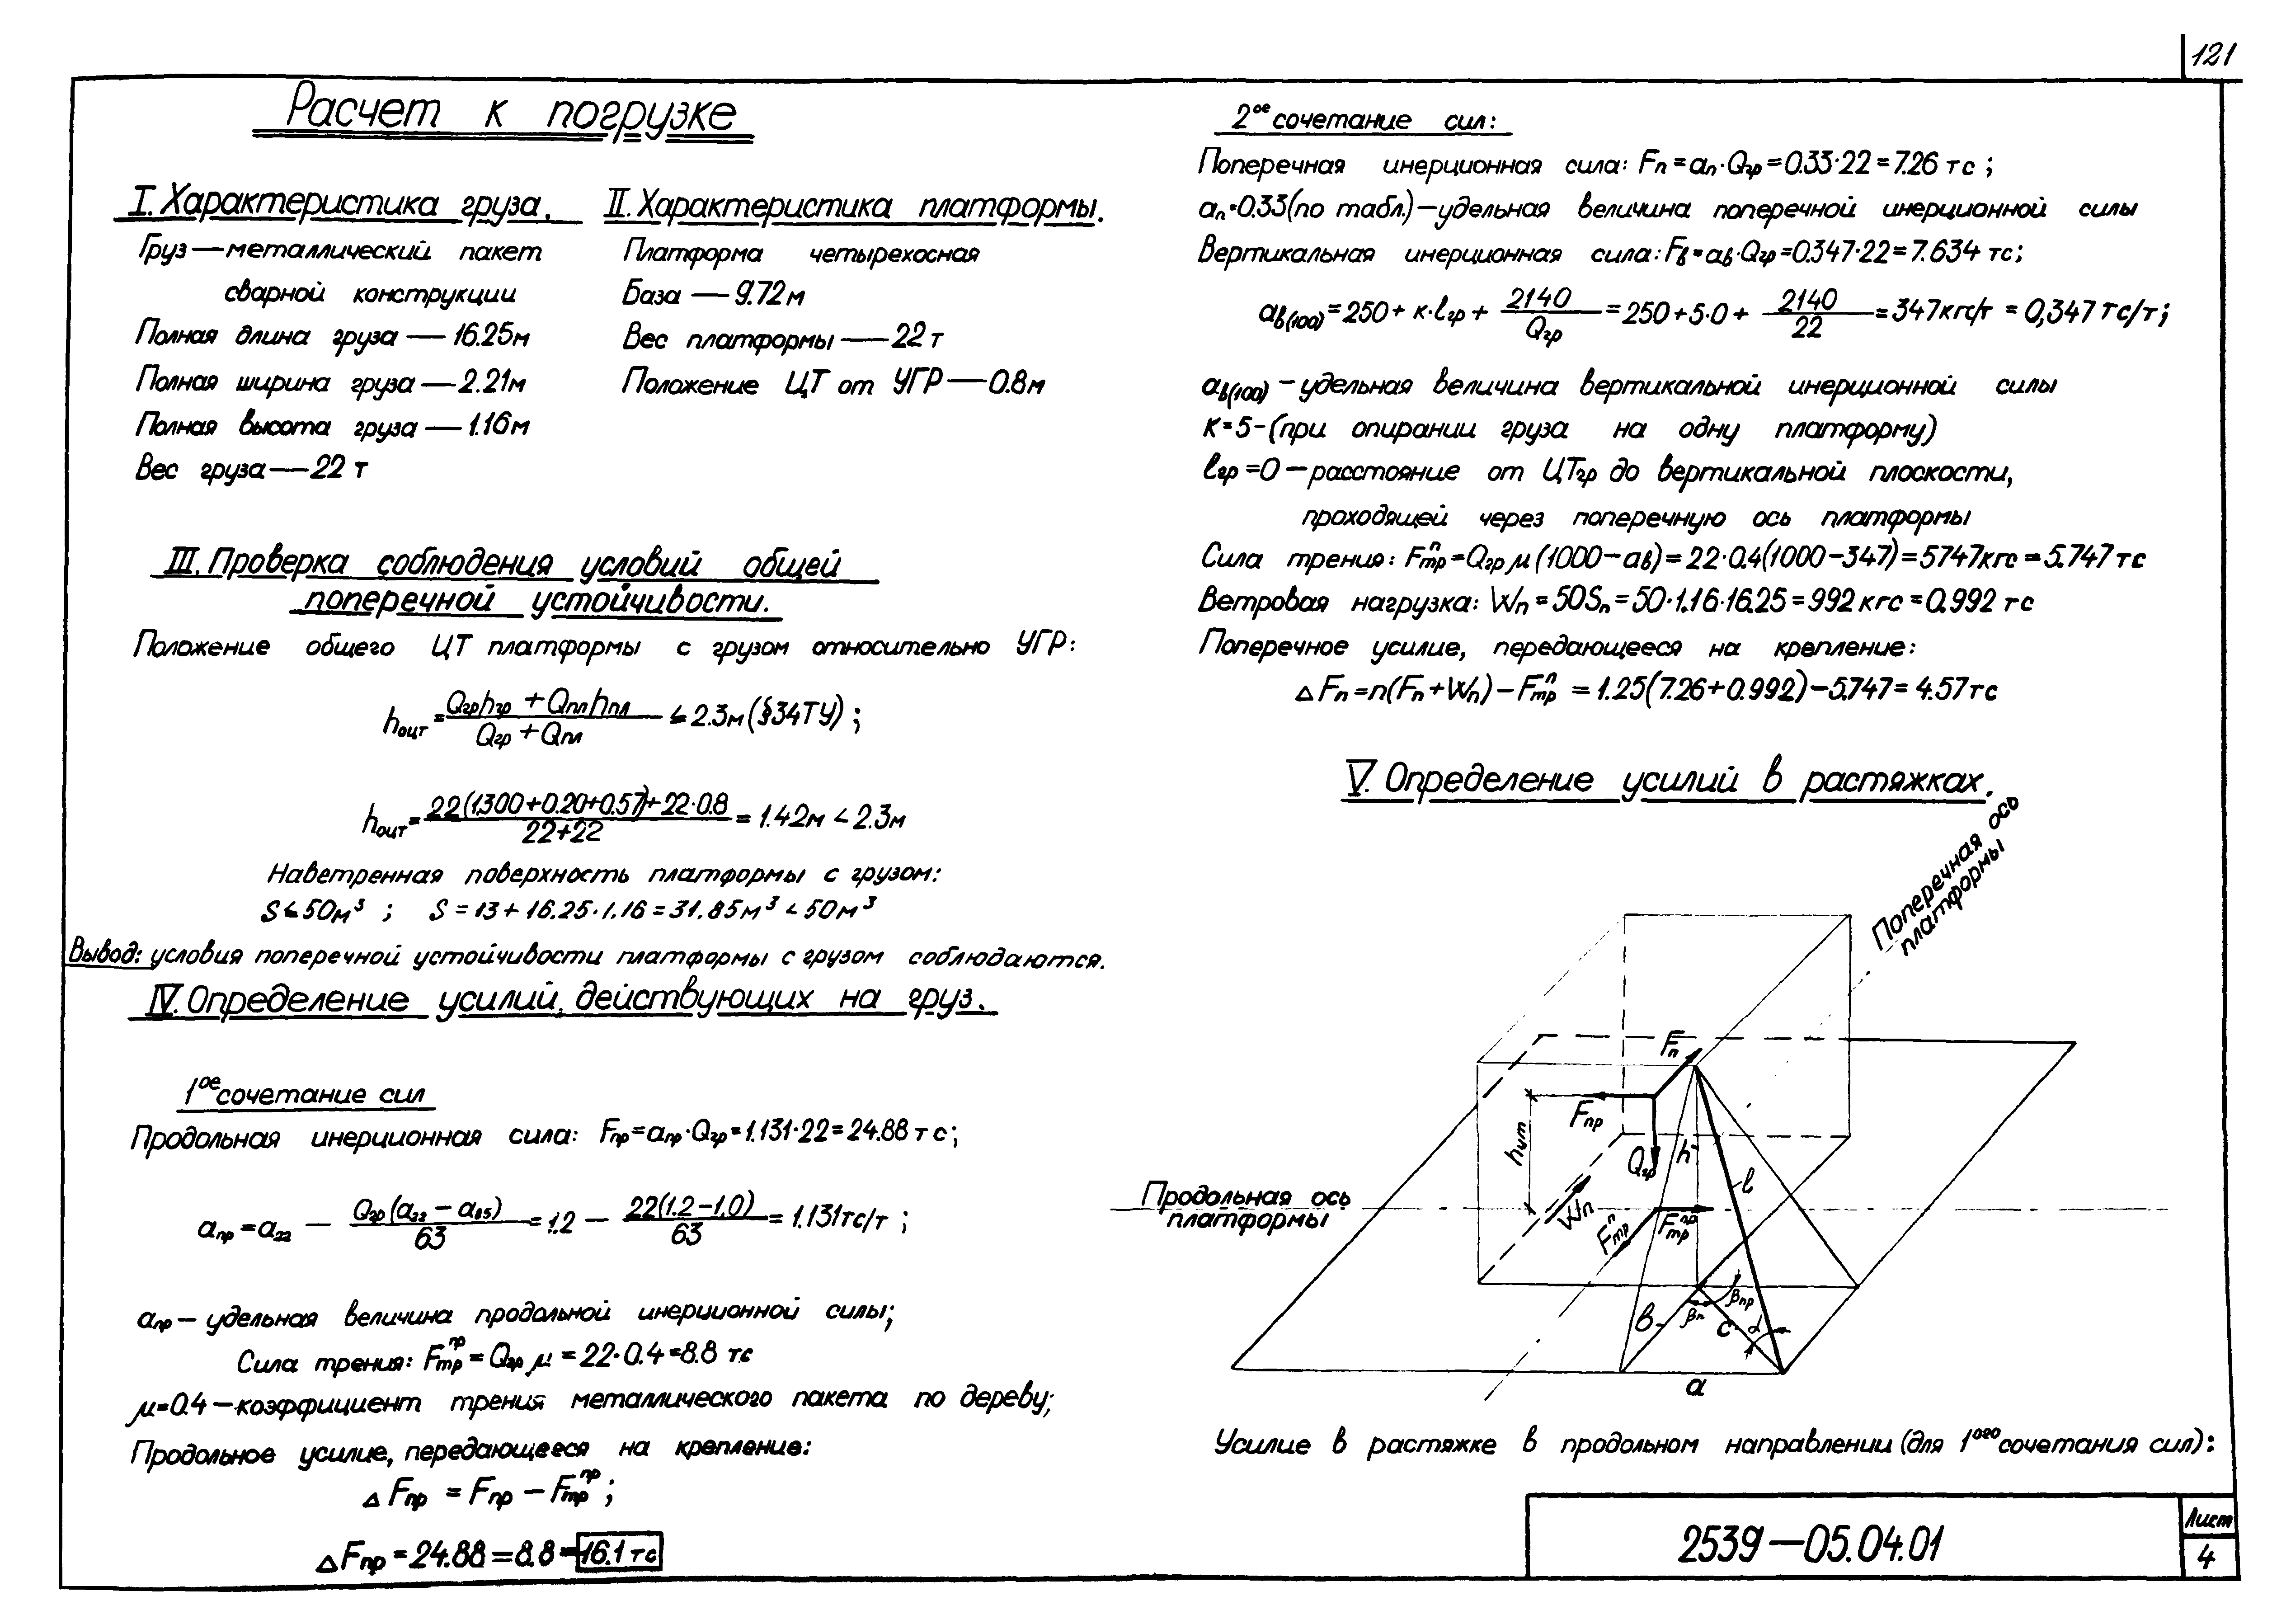 121
Расчет к погрузке
I. Характеристика груза.
Груз — металлический пакет
сварной конструкции
Полная длина груза — 16.25м
Полная ширина груза — 2.21м
Полная высота груза — 1.16м
Вес груза — 22 т
II. Характеристика платформы.
Платформа четырехосная
База — 9.72м
Вес платформы — 22 т
Положение ЦТ от УГР — 0.8м
III. Проверка соблюдения условий общей
поперечной устойчивости.
Положение общего ЦТ платформы с грузом относительно УГР:
hоцт = (Qгр hгр + Qпл hпл) / (Qгр + Qпл) ≤ 2.3м (§34ТУ) ;
hоцт = (22(1.300+0.20+0.57)+22·0.8) / (22+22) = 1.42м < 2.3м
Наветренная поверхность платформы с грузом:
S ≤ 50м³ ; S = 13 + 16.25·1.16 = 31.85м³ < 50м³
Вывод: условия поперечной устойчивости платформы с грузом соблюдаются.
IV. Определение усилий, действующих на груз.
1ое сочетание сил
Продольная инерционная сила: Fпр = aпр·Qгр = 1.131·22 = 24.88 тс;
aпр = a22 — Qгр(a22 — a85) / 63 = 1.2 — 22(1.2 — 1.0) / 63 = 1.131тс/т ;
aпр — удельная величина продольной инерционной силы;
Сила трения: Fтр^пр = Qгр μ = 22·0.4 = 8.8 тс
μ = 0.4 — коэффициент трения металлического пакета по дереву;
Продольное усилие, передающееся на крепление:
Δ Fпр = Fпр — Fтр^пр ;
Δ Fпр = 24.88 = 8.8 = 16.1 тс
2ое сочетание сил:
Поперечная инерционная сила: Fп = aп·Qгр = 0.33·22 = 7.26 тс ;
aп = 0.33 (по табл.) — удельная величина поперечной инерционной силы
Вертикальная инерционная сила: Fв = aв·Qгр = 0.347·22 = 7.634 тс;
aв(100) = 250 + к·lгр + 2140 / Qгр = 250 + 5·0 + 2140 / 22 = 347кгс/т = 0,347 тс/т ;
aв(100) — удельная величина вертикальной инерционной силы
К = 5 — (при опирании груза на одну платформу)
lгр = 0 — расстояние от ЦТгр до вертикальной плоскости,
проходящей через поперечную ось платформы
Сила трения: Fтр^п = Qгр μ (1000 — aв) = 22·0.4(1000 — 347) = 5747кгс = 5.747 тс
Ветровая нагрузка: Wп = 50Sп = 50·1.16·16.25 = 992 кгс = 0.992 тс
Поперечное усилие, передающееся на крепление:
Δ Fп = n(Fп + Wп) — Fтр^п = 1.25(7.26 + 0.992) — 5.747 = 4.57тс
V. Определение усилий в растяжках.
Поперечная ось
платформы
Fп
Fпр
hцт
Qгр
h
l
Продольная ось
платформы
Wп
Fтр^п
Fтр^пр
βпр
βп
в
с
α
а
Усилие в растяжке в продольном направлении (для 1ого сочетания сил):
2539 — 05.04.01
Лист
4